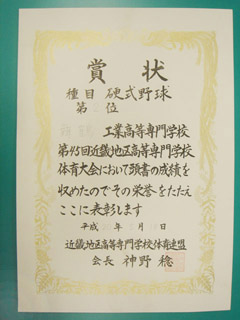 賞状
種目 硬式野球
第 位
工業高等専門学校
第45回近畿地区高等専門学校
体育大会において頭書の成績を
収めたのでその栄誉をたたえ
ここに表彰します
平成 年 月 日
近畿地区高等専門学校体育連盟
会長 神野 稔